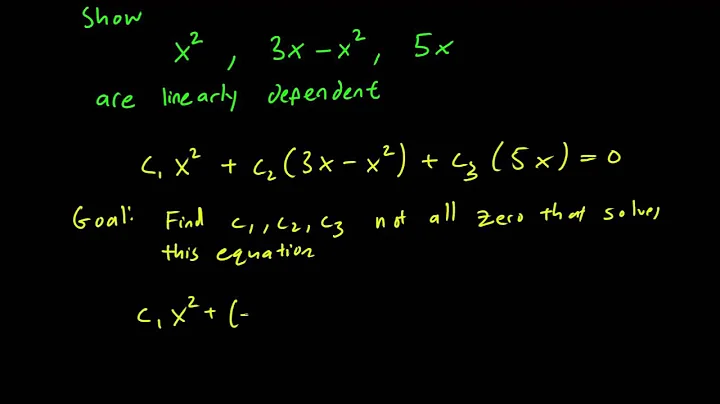 Show
x², 3x - x², 5x
are linearly dependent
c₁x² + c₂(3x - x²) + c₃(5x) = 0
Goal: Find c₁, c₂, c₃ not all zero that solves
this equation
c₁x² + (-